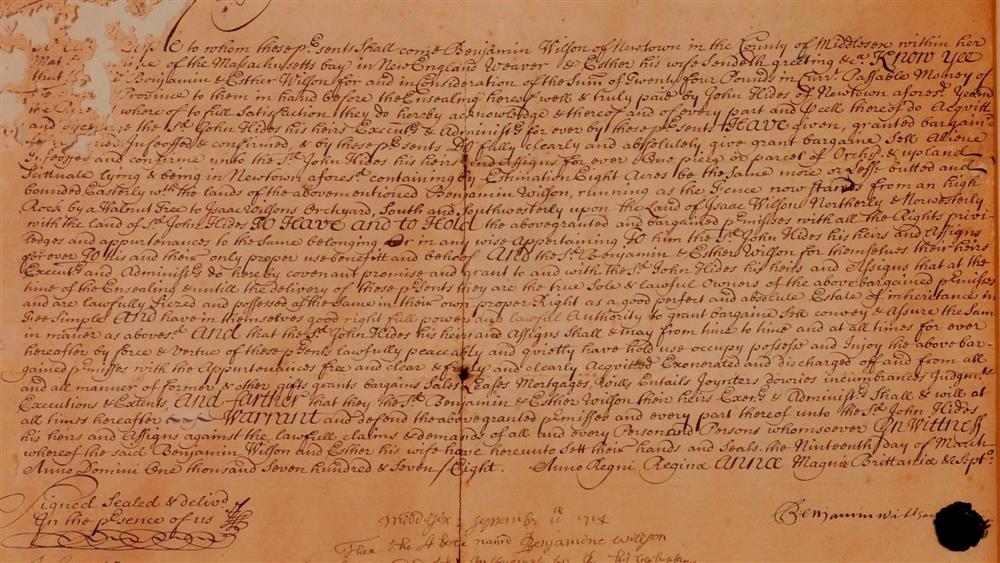 to whom these pʳsents Shall come Benjamin Wilson of Newtown in the County of Middlesex within her
of the Massachusetts bay in New England Weaver & Esther his wife Sendeth greeting &cᵃ Know yee
Benjamin & Esther Wilson for and in Consideration of the Sum of Twenty four Pounds in Currᵗ Passable Money of
Province to them in hand before the Ensealing hereof well & truly paid by John Hides of Newtown aforesᵈ
whereof to full Satisfaction they do hereby acknowledge & thereof and of every part and pcell thereof do Acquitt
and the sᵈ John Hides his heirs Executʳˢ & Administʳˢ for ever by these pʳsents Have given, granted bargain
Infeoffed & confirmed, & by these pʳsents Do fully clearly and absolutely give grant bargaine Sell Alliene
Infeoffe and confirme unto the sᵈ John Hides his heirs and Assigns for ever One piece or parcel of Orchʸᵈ & upland
Scittuate lying & being in Newtown aforesᵈ containing by Estimation Eight Acres be the Same more or Less butted and
bounded Easterly wᵗʰ the lands of the abovementioned Benjamin Wilson, running as the Fence now stands from an high
Rock by a Walnut Tree to Isaac Wilsons Orchyard, South and Southwesterly upon the Land of Isaac Wilson Northerly & Norwesterly
with the land of sᵈ John Hides To Have and to Hold the abovegranted and bargained pʳmisses with all the Rights privi-
ledges and appurtenances to the Same belonging Or in any wise Appertaining To him the sᵈ John Hides his heirs and Assigns
for ever To his and their only proper use benefitt and behoof And the sᵈ Benjamin & Esther Wilson for themselves their heirs
Executʳˢ and Administʳˢ do hereby covenant promise and grant to and with the sᵈ John Hides his heirs and Assigns that at the
time of the Ensealing & untill the delivery of these pʳsents they are the true Sole & lawful Owners of the above bargained pʳmisses
and are lawfully Siezed and possessed of the Same in their own proper Right as a good perfect and absolute Estate of inheritance in
Fee Simple And have in themselves good right full power and lawful Authority to grant bargaine Sell convey & Assure the Same
in maner as abovesᵈ And that the sᵈ John Hides his heirs and Assigns Shall & may from time to time and at all times for ever
hereafter by force & vertue of these pʳsents lawfully peaceably and quietly have hold use occupy possess and Injoy the above bar-
gained pʳmisses with the Appurtenances free and clear & freely and clearly Acquitted Exonerated and discharged off and from all
and all manner of former & other gifts grants bargains Sales Leases Mortgages, Wills Entails Joynters Dowries incumbrances Judgmᵗˢ
Executions & Extents And farther that they the sᵈ Benjamin & Esther Wilson their heirs Execʳˢ & Administʳˢ Shall & will at
all times hereafter Warrant and defend the abovegranted pʳmisses and every part thereof unto the sᵈ John Hides
his heirs and Assigns against the lawfull claims & demands of all and every Person and Persons whomsoever In Wittness
whereof the said Benjamin Wilson and Esther his wife have hereunto sett their hands and Seals the Ninteenth day of March
Anno Domini One thousand Seven hundred & Seven/Eight. Anno Regni Reginæ Annæ Magnæ Brittaniæ & Septᵒ
Signed Sealed & delivᵈ
In the pʳsence of us
Benjamin Willson
Middlesex September 1714
Then the Above named Benjamine Willson